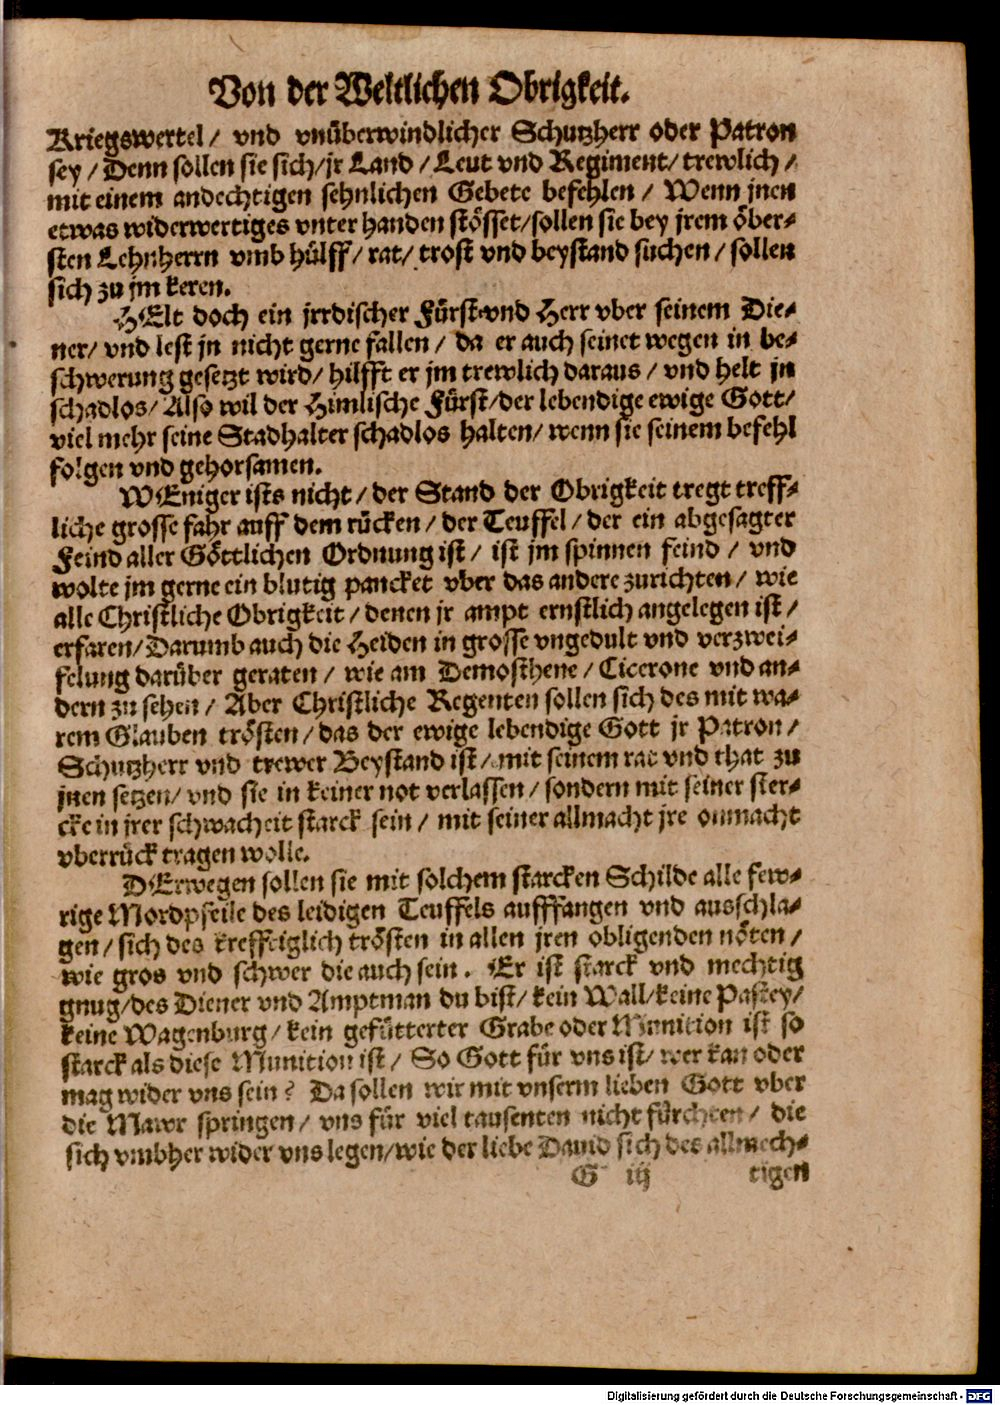 Von der Weltlichen Obrigkeit.
Kriegswertel / vnd vnüberwindlicher Schutzherr oder Patron
sey / Denn sollen sie sich / jr Land / Leut vnd Regiment / trewlich /
mit einem andechtigen sehnlichen Gebete befehlen / Wenn jnen
etwas widerwertiges vnter handen stösset / sollen sie bey jrem öber-
sten Lehnherrn vmb hülff / rat / trost vnd beystand suchen / sollen
sich zu jm keren.
HElt doch ein jrrdischer Fürst vnd Herr vber seinem Die-
ner / vnd lest jn nicht gerne fallen / da er auch seinet wegen in be-
schwerung gesetzt wird / hilfft er jm trewlich daraus / vnd helt jn
schadlos / Also wil der Himlische Fürst / der lebendige ewige Gott /
viel mehr seine Stadhalter schadlos halten / wenn sie seinem befehl
folgen vnd gehorsamen.
WEniger ists nicht / der Stand der Obrigkeit tregt treff-
liche grosse fahr auff dem rücken / der Teuffel / der ein abgesagter
Feind aller Göttlichen Ordnung ist / ist jm spinnen feind / vnd
wolte jm gerne ein blutig pancket vber das andere zurichten / wie
alle Christliche Obrigkeit / denen jr ampt ernstlich angelegen ist /
erfaren / Darumb auch die Heiden in grosse vngedult vnd verzwei-
felung darüber geraten / wie am Demosthene / Cicerone vnd an-
dern zu sehen / Aber Christliche Regenten sollen sich des mit wa-
rem Glauben trösten / das der ewige lebendige Gott jr Patron /
Schutzherr vnd trewer Beystand ist / mit seinem rat vnd that zu
jnen setzen / vnd sie in keiner not verlassen / sondern mit seiner ster-
cke in jrer schwacheit starck sein / mit seiner allmacht jre onmacht
vberrück tragen wolle.
DErwegen sollen sie mit solchem starcken Schilde alle few-
rige Mordpfeile des leidigen Teuffels aufffangen vnd ausschla-
gen / sich des kreffciglich trösten in allen jren obligenden nöten /
wie gros vnd schwer die auch sein. Er ist starck vnd mechtig
gnug / des Diener vnd Amptman du bist / kein Wall / keine Pastey /
keine Wagenburg / kein gefütterter Grabe oder Munition ist so
starck als diese Munition ist / So Gott für vns ist / wer kan oder
mag wider vns sein? Da sollen wir mit vnserm lieben Gott vber
die Mawr springen / vns für viel tausenten nicht fürchten / die
sich vmbher wider vns legen / wie der liebe Dauid sich des allmech-
G iij tigen
Digitalisierung gefördert durch die Deutsche Forschungsgemeinschaft - DFG